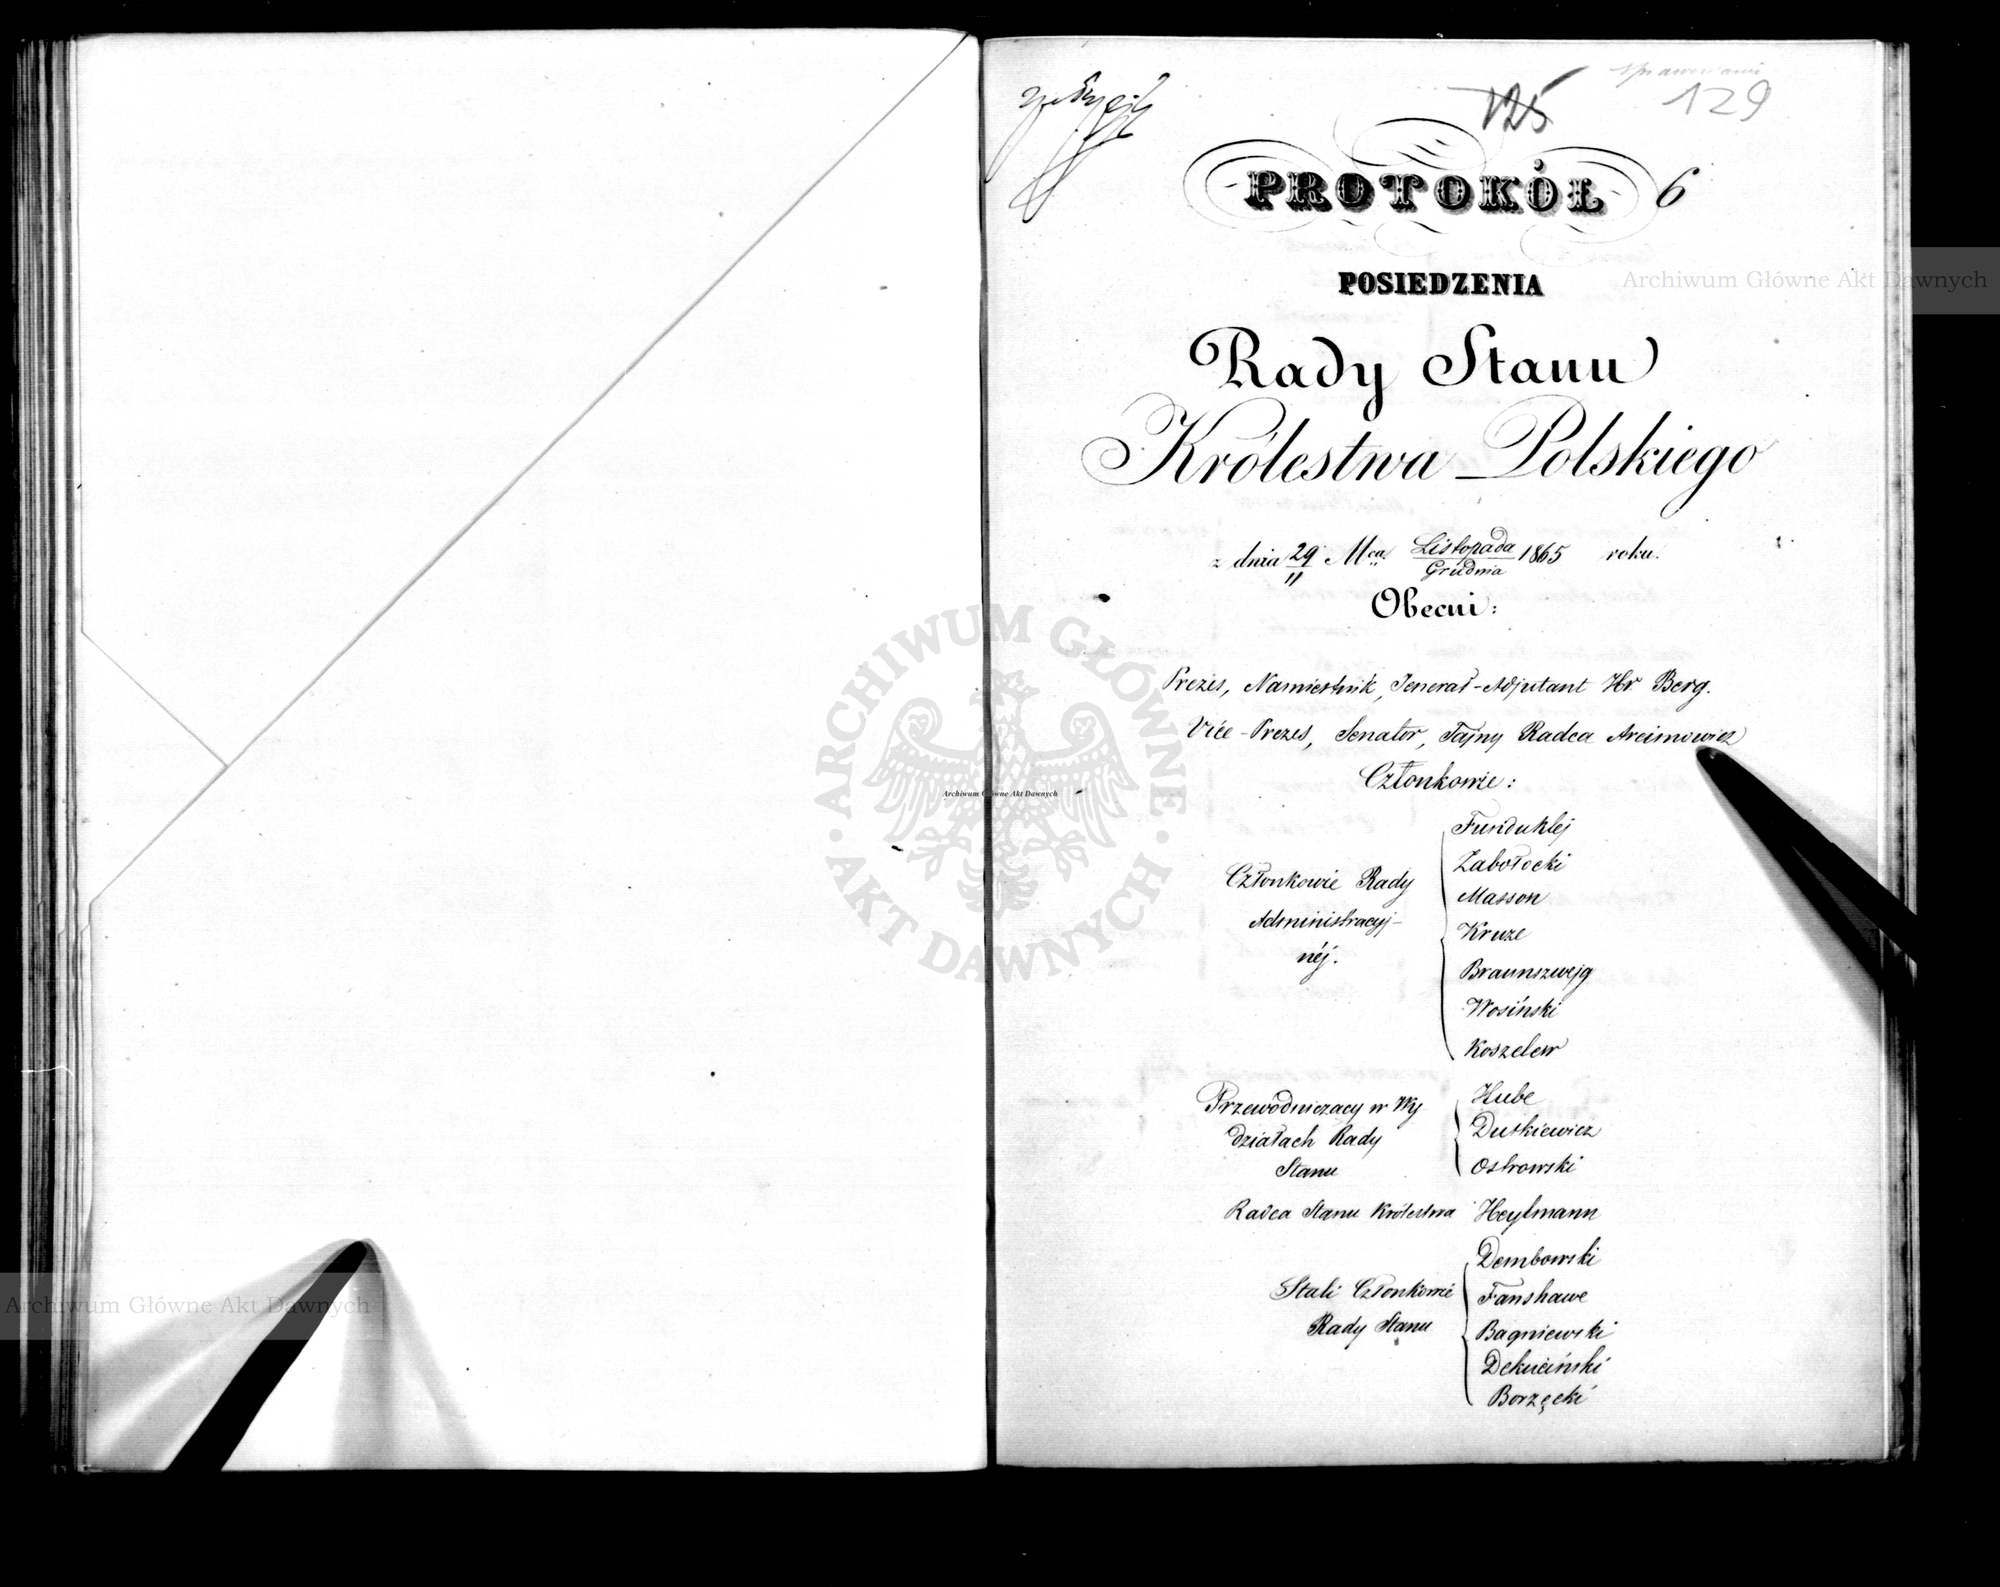 125
129
PROTOKÓŁ 6
POSIEDZENIA
Rady Stanu
Królestwa Polskiego
z dnia 29/11 Mca Listopada/Grudnia 1865 roku.
Obecni:
Prezes, Namiestnik, Jenerał-Adjutant Hr Berg.
Vice-Prezes, Senator, Tajny Radca Arcimowicz
Członkowie:
Członkowie Rady
Administracyj-
néj.
Funduklej
Zabołocki
Masson
Kruze
Braunszwejg
Wosiński
Koszelew
Przewodniczacy w Wy
działach Rady
Stanu
Hube
Dutkiewicz
Ostrowski
Radca Stanu Królestwa Heylmann
Stali Członkowie
Rady Stanu
Dembowski
Fanshawe
Bagniewski
Dekuciński
Borzęcki
Archiwum Główne Akt Dawnych
Archiwum Główne Akt Dawnych
Archiwum Główne Akt Dawnych
ARCHIWUM GŁÓWNE
AKT DAWNYCH